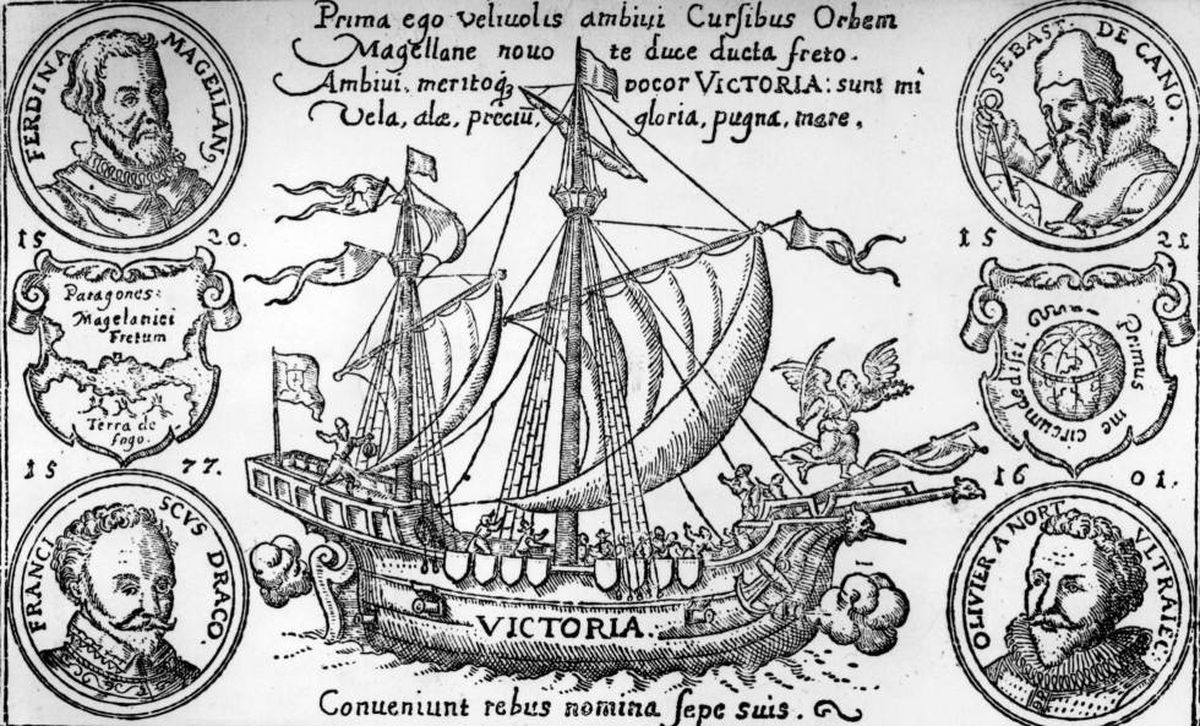 Prima ego velivolis ambivi Cursibus Orbem
Magellane novo te duce ducta freto.
Ambivi, meritoq₃ vocor VICTORIA: sunt mî
Vela, alæ, preciũ, gloria, pugna, mare.
FERDINA MAGELLAN
15 20.
SEBAST. DE CANO.
15 21
Paragones:
Magelanici
Fretum
Terra de
fogo.
Primus me circumdedisti.
15 77.
FRANCI SCVS DRACO.
16 01.
OLIVIER A NORT VLTRAIEC.
VICTORIA.
Conveniunt rebus nomina sepe suis.